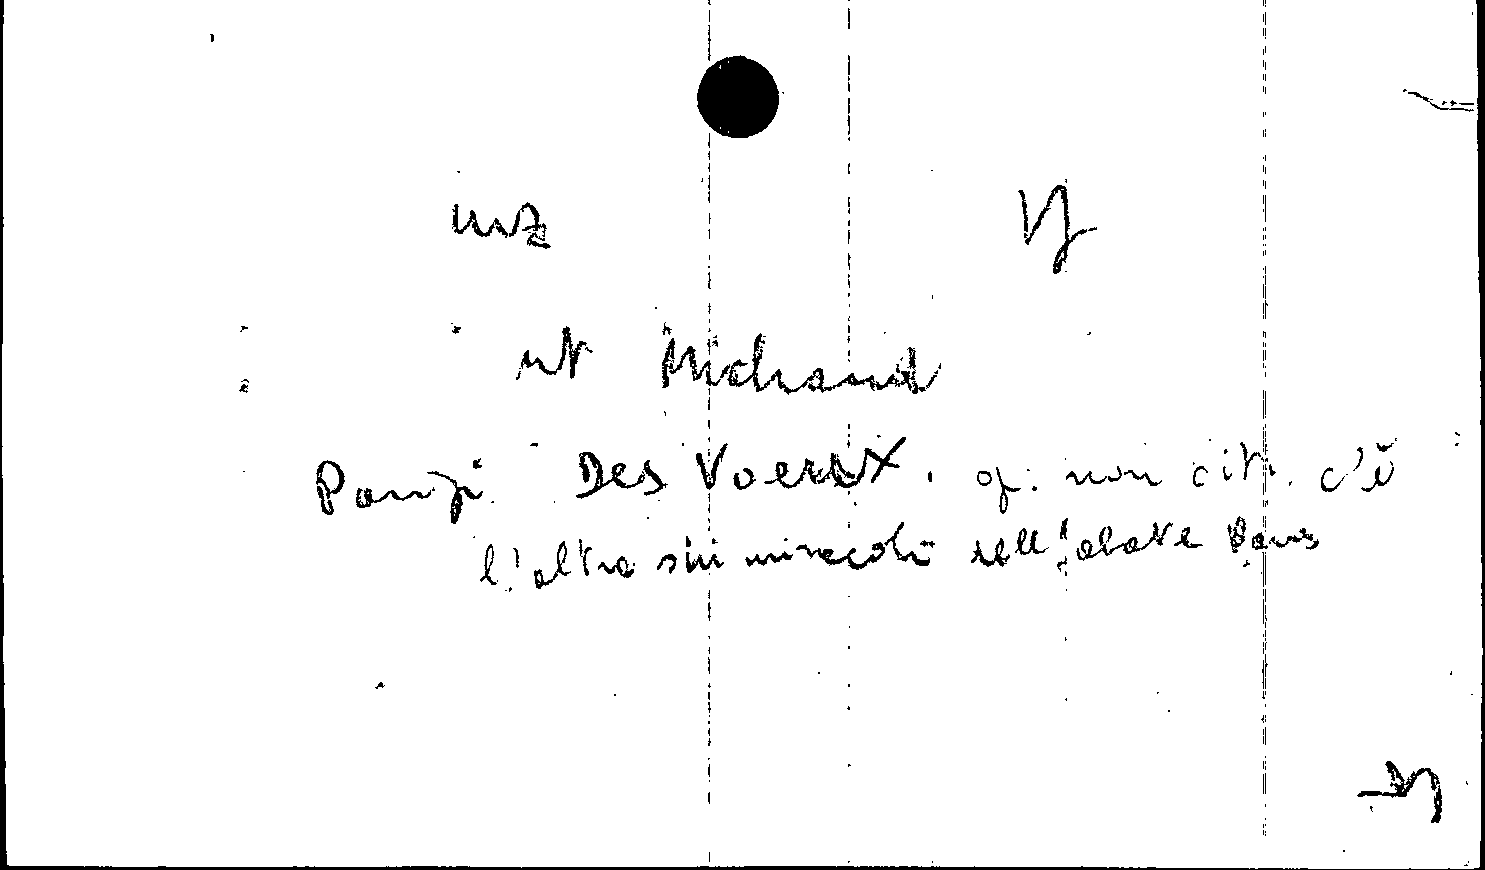 nt Michaud
Parigi Des Voeux. op. non cit. c'è
l'altra sui miracoli dell'abate Paris